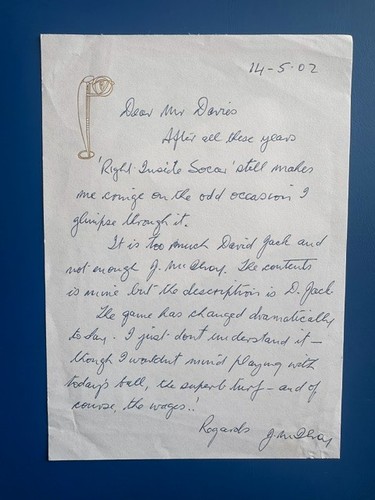 14-5-02
Dear Mr Davies
After all these years
'Right Inside Socar' still makes
me cringe on the odd occasion I
glimpse through it.
It is too much David Jack and
not enough J. McIlroy. The contents
is mine but the description is D. Jack.
The game has changed dramatically
today. I just dont understand it –
though I wouldnt mind playing with
today's ball, the superb turf – and of
course, the wages!!
Regards J McIlroy